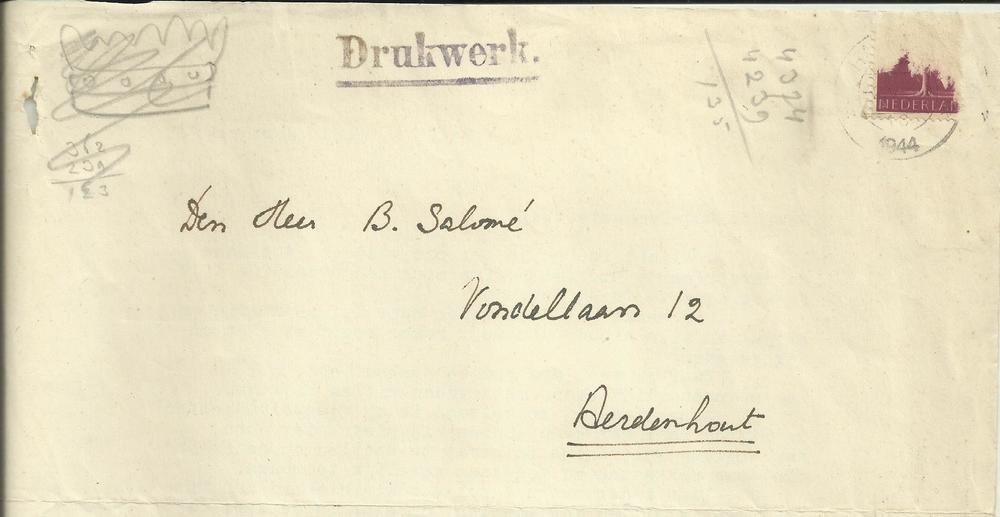 Drukwerk.
4374
4239
135
NEDERLAN
1944
312
123
Den Heer B. Salomé
Vondellaan 12
Aerdenhout